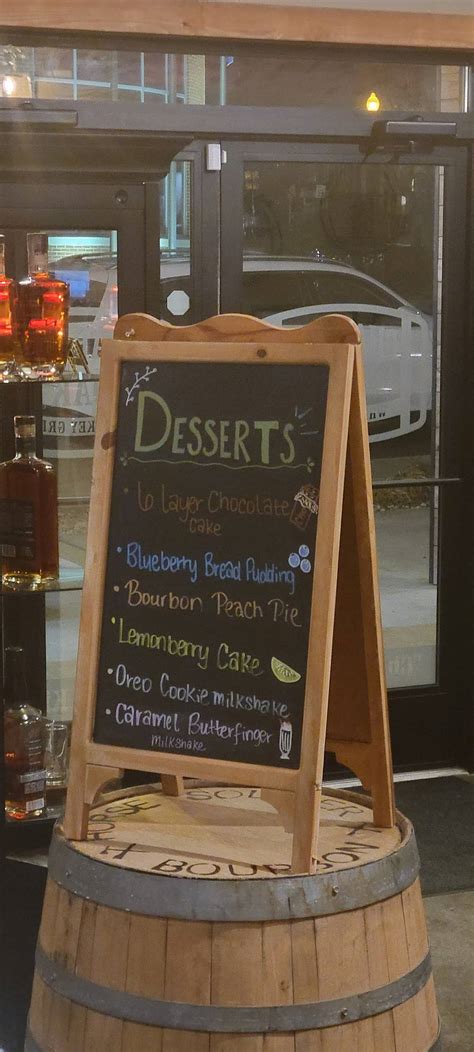 DESSERTS
• 6 Layer Chocolate
Cake
• Blueberry Bread Pudding
• Bourbon Peach Pie
• Lemonberry Cake
• Oreo Cookie milkshake
• Caramel Butterfinger
milkshake
BOURBON